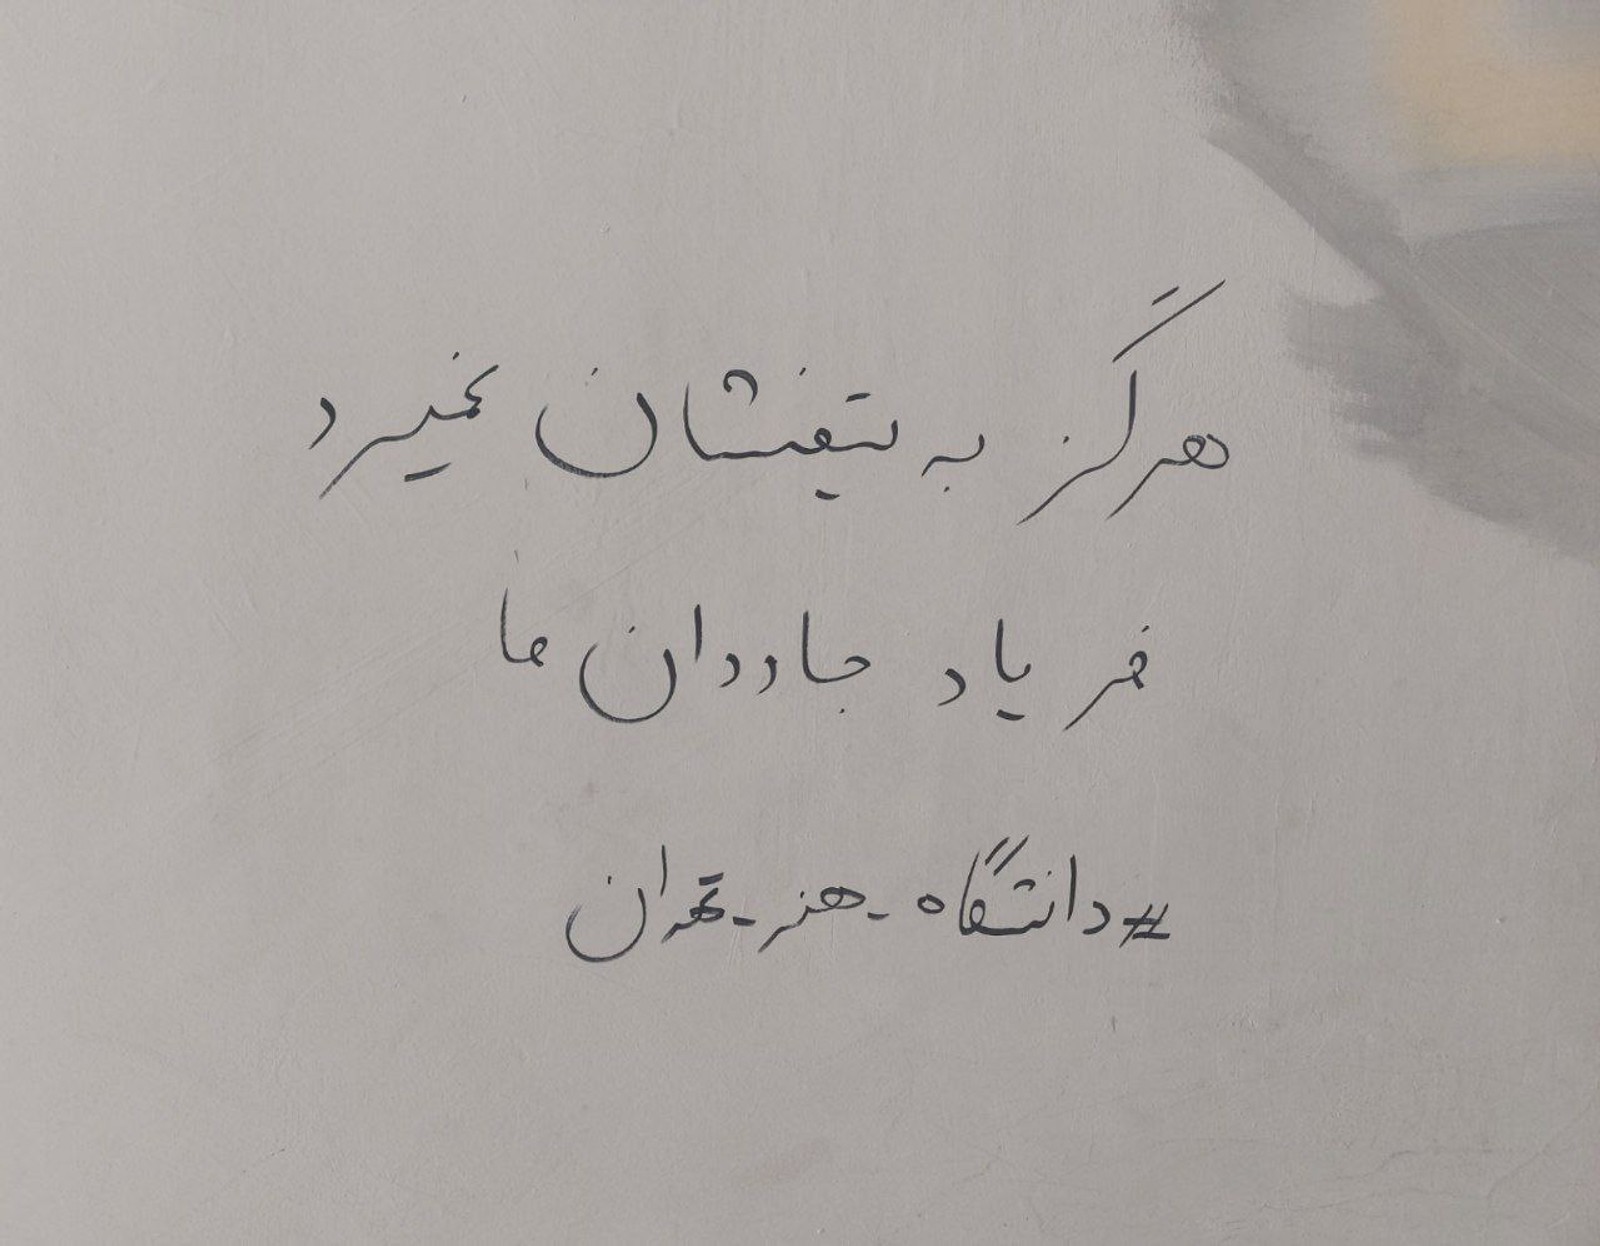 هرگز به تیغشان نمیرد
فریاد جاودان ما
#دانشگاه_هنر_تهران